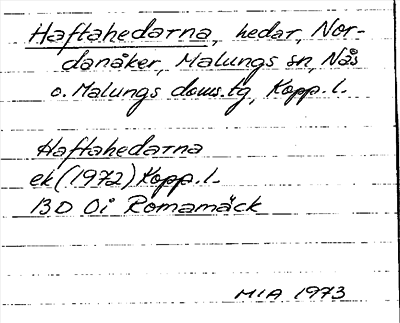 Haftahedarna, hedar, Nor-
danåker, Malungs sn, Nås
o. Malungs doms.tg, Kopp.l.
Haftahedarna
ek (1972) Kopp.l.
13D 0i Romamäck
MIA 1973